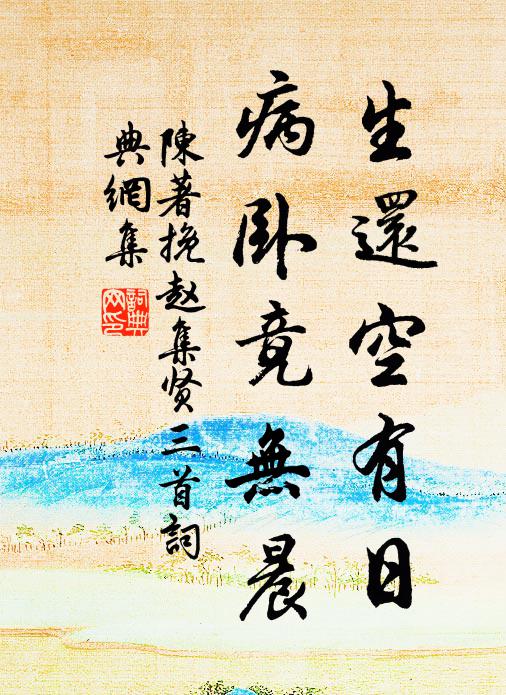 生還空有日
病卧竟無晨
陳著挽赵集贤三首詞
典網集
詞典
网印